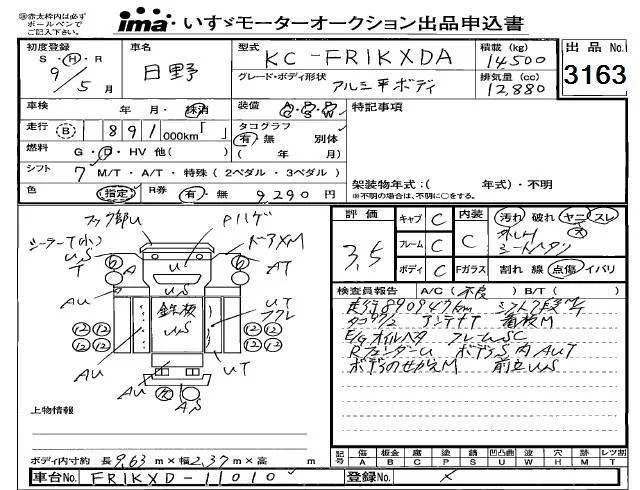 ※赤太枠内は必ずボールペンでご記入下さい。
ima いすゞモーターオークション出品申込書
初度登録 S・H・R 9/5月
車名 日野
型式 KC-FR1KXDA
積載 (kg) 14,500
出品 No. 3163
グレード・ボディ形状 アルミ平ボディ
排気量 (cc) 12,880
車検 年 月・抹消
装備 A/C・P/S・P/W
特記事項
走行 B 891,000km「 」
タコグラフ 有・無 別体 ( 年 月)
燃料 G・D・HV 他( )
シフト 7 M/T・A/T・特殊(2ペダル・3ペダル)
架装物年式:( 年式)・不明
※不明の場合は、不明に○をする。
色 指定 R券 有・無 9,290円
フック部U Pハゲ
シーラーT(小) ドアXM
US
T 6 A U 6 AT
AU 鉄板 US UT フクレ
12 12 12 12
12 12 12 12
AU UT
AU AS
上物情報
ボディ内寸約 長 9.63 m×幅 2.37 m×高 m
評価 3.5
キャブ C 内装 C 汚れ 破れ ヤニ スレ 大
フレーム C シートヘタリ
ボディ C Fガラス 割れ 線 点傷 イバリ
検査員報告 A/C(不良) B/T( )
走行890947km シフト7段M/T
アンテナT 看板M
E/Gオイルベタ フレームSC
RフェンダーU ボディS 内AUT
ボデーのせかえM 前立US
記号 傷A 板金B 腐C 塗P 錆S 凹凸曲U 波W 穴H 跡M レツ割T
車台No. FR1KXD-11010
登録No. ×